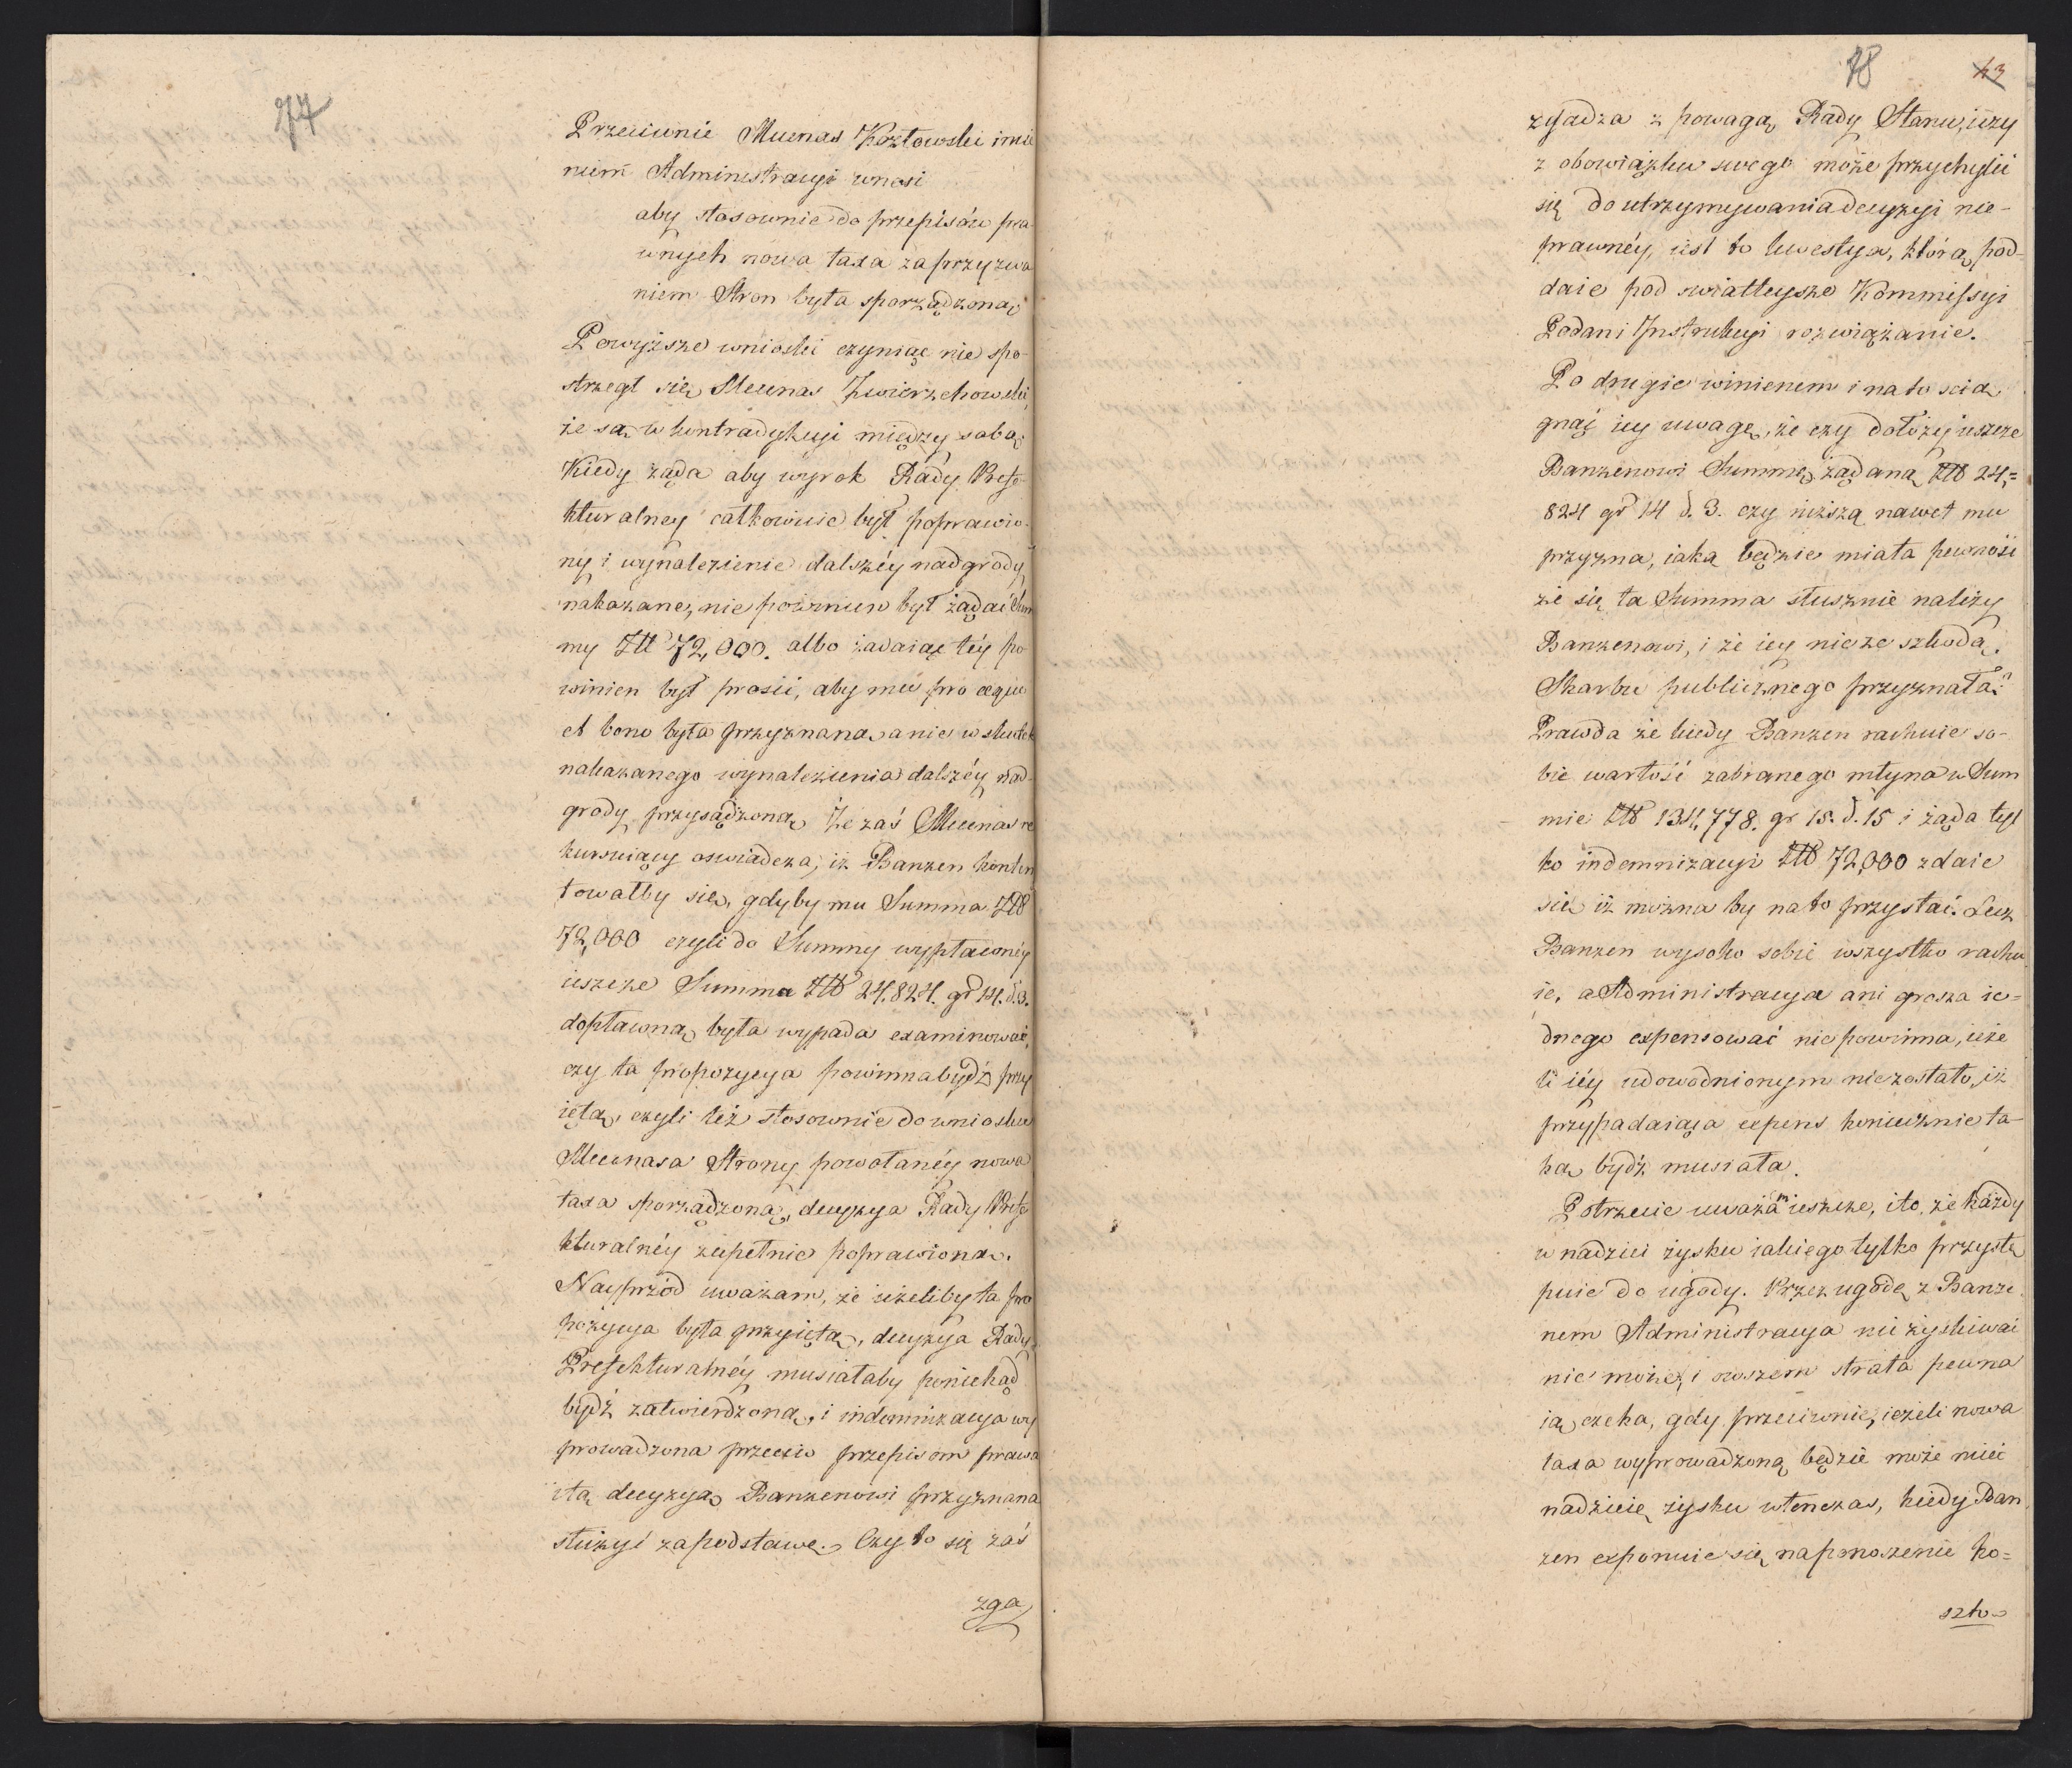 77
Przeciwnie Mecenas Kozłowski imie
niem Administracyi wnosi
aby stosownie do przepisów pra
wnych nowa taxa za przyzwa
niem Stron była sporządzona,
Powyższe wnioski czyniąc nie spo-
strzegł się Mecenas Zwierzchowski,
że są w kontradykcyi między sobą.
Kiedy żąda aby wyrok Rady Prefe-
kturalney całkowicie był poprawio-
ny i wynalezienie dalszéy nadgrody
nakazane, nie powinien był żądać Sum
my Złł 72,000. albo żądaiąc téy po
winien był prosić, aby mu pro aequo
et bono była przyznana, a nie w skutek
nakazanego wynalezienia dalszéy nad-
grody przysądzona, Że zaś Mecenas re
kuruiący oswiadcza, iż Banzen konten
towałby się, gdyby mu Summa Złł
72,000 czyli do Summy wypłaconéy
ieszcze Summa Złł 24,824. gr 14. d. 3.
dopłacona, była wypada examinować,
czy ta propozycya powinna bydź przy
ięta, czyli też stosownie do wniosku
Mecenasa Strony powołanéy nowa
taxa sporządzona, decyzya Rady Prefe
kturalnéy zupełnie poprawiona.
Nayprzód uważam, że ieżeliby ta pro
pozycya była przyięta, decyzya Rady
Prefekturalnéy musiałaby poniekąd
bydź zatwierdzona, i indemnizacya wy
prowadzona przeciw przepisom prawa
i tą decyzyą Banzenowi przyznana
służyć za podstawę. Czy to się zaś
zga
78
43
zgadza z powagą Rady Stanu, i czy
z obowiązku swego może przychylić
się do utrzymywania decyzyi nie-
prawnéy, iest to kwestya, którą pod-
daie pod swiatleysze Kommissyi
Podań i Instrukcyi rozwiązanie.
Po drugie winienem i na to scią
gnąć iey uwagę, że czy dołoży ieszcze
Banzenowi Summę żądaną Złł 24,=
824 gr 14 d. 3. czy niższą nawet mu
przyzna, iaką będzie miała pewność
że się ta Summa słusznie należy
Banzenowi, i że iey nie ze szkodą
Skarbu publicznego przyznała?
Prawda że kiedy Banzen rachuie so-
bie wartość zabranego młyna w Sum
mie Złł 134,778. gr 15. d. 15 i żąda tyl
ko indemnizacyi Złł 72,000 zdaie
się iż można by na to przystać. Lecz
Banzen wysoko sobie wszystko rachu
ie, a Administracya ani grosza ie=
dnego expensować nie powinna, ieże
li iéy udowodnionym nie zostało, iż
przypadaiąca expens koniecznie ta-
ka bydź musiała.
Potrzecie uważam ieszcze, i to, że każdy
w nadziei zysku iakiego tylko przystę
puie do ugody. Przez ugodę z Banze
nem Administracya nic zyskiwać
nie może, i owszem strata pewna
ią czeka, gdy przeciwnie, ieżeli nowa
taxa wyprowadzoną będzie może mieć
nadzieię zysku wtenczas, kiedy Ban
zen exponuie się na ponoszenie ko=
szto-